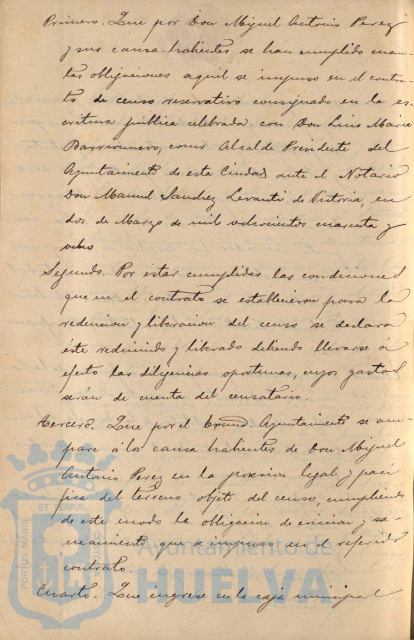 Primero. Que por Don Miguel Antonio Perez
y sus causa-habientes, se han cumplido cuan-
tas obligaciones aquel se impuso en el contra-
to de censo reservativo consignado en la es-
critura pública celebrada con Don Luis Maria
Barrionuevo, como Alcalde Presidente del
Ayuntamiento de esta Ciudad ante el Notario
Don Manuel Sanchez Levanti de Victoria, en
dos de Marzo de mil ochocientos cuarenta y
ocho
Segundo. Por estar cumplidas las condiciones
que en el contrato se establecieron para la
redencion y liberacion del censo se declara
éste redimido y liberado debiendo llevarse á
efecto las diligencias oportunas, cuyos gastos
serán de cuenta del censatario.
Tercero. Que por el Excmo. Ayuntamiento se am-
pare á los causa habientes de Don Miguel
Antonio Perez en la posesion legal y paci-
fica del terreno objeto del censo, cumpliendo
de este modo la obligacion de eviccion y sa-
neamiento que se impuso en el referido
contrato.
Cuarto. Que ingrese en la caja municipal
PORTUS MARIS ET TERRAE
Ayuntamiento de
HUELVA